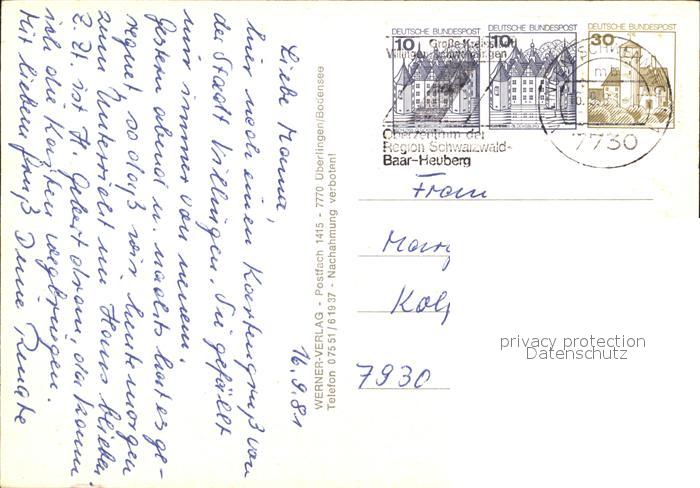 16.9.81
Liebe Mama,
hier noch einen Kartengruß von
der Stadt Villingen. Sie gefällt
mir immer von neuem.
Gestern abend u. nachts hat es ge-
regnet, sodaß wir heute morgen
zum Unterricht im Haus blieben.
Z. Zt. ist H. Gebert dran, da kann
ich die Karten wegbringen.
Mit liebem Gruß Deine Renate
WERNER-VERLAG - Postfach 1415 - 7770 Überlingen/Bodensee
Telefon 07551/61937 - Nachahmung verboten!
DEUTSCHE BUNDESPOST
10
DEUTSCHE BUNDESPOST
10
DEUTSCHE BUNDESPOST
30
Große Kreisstadt
Villingen-Schwenningen
Oberzentrum der
Region Schwarzwald-
Baar-Heuberg
7730
Frau
7930
privacy protection
Datenschutz